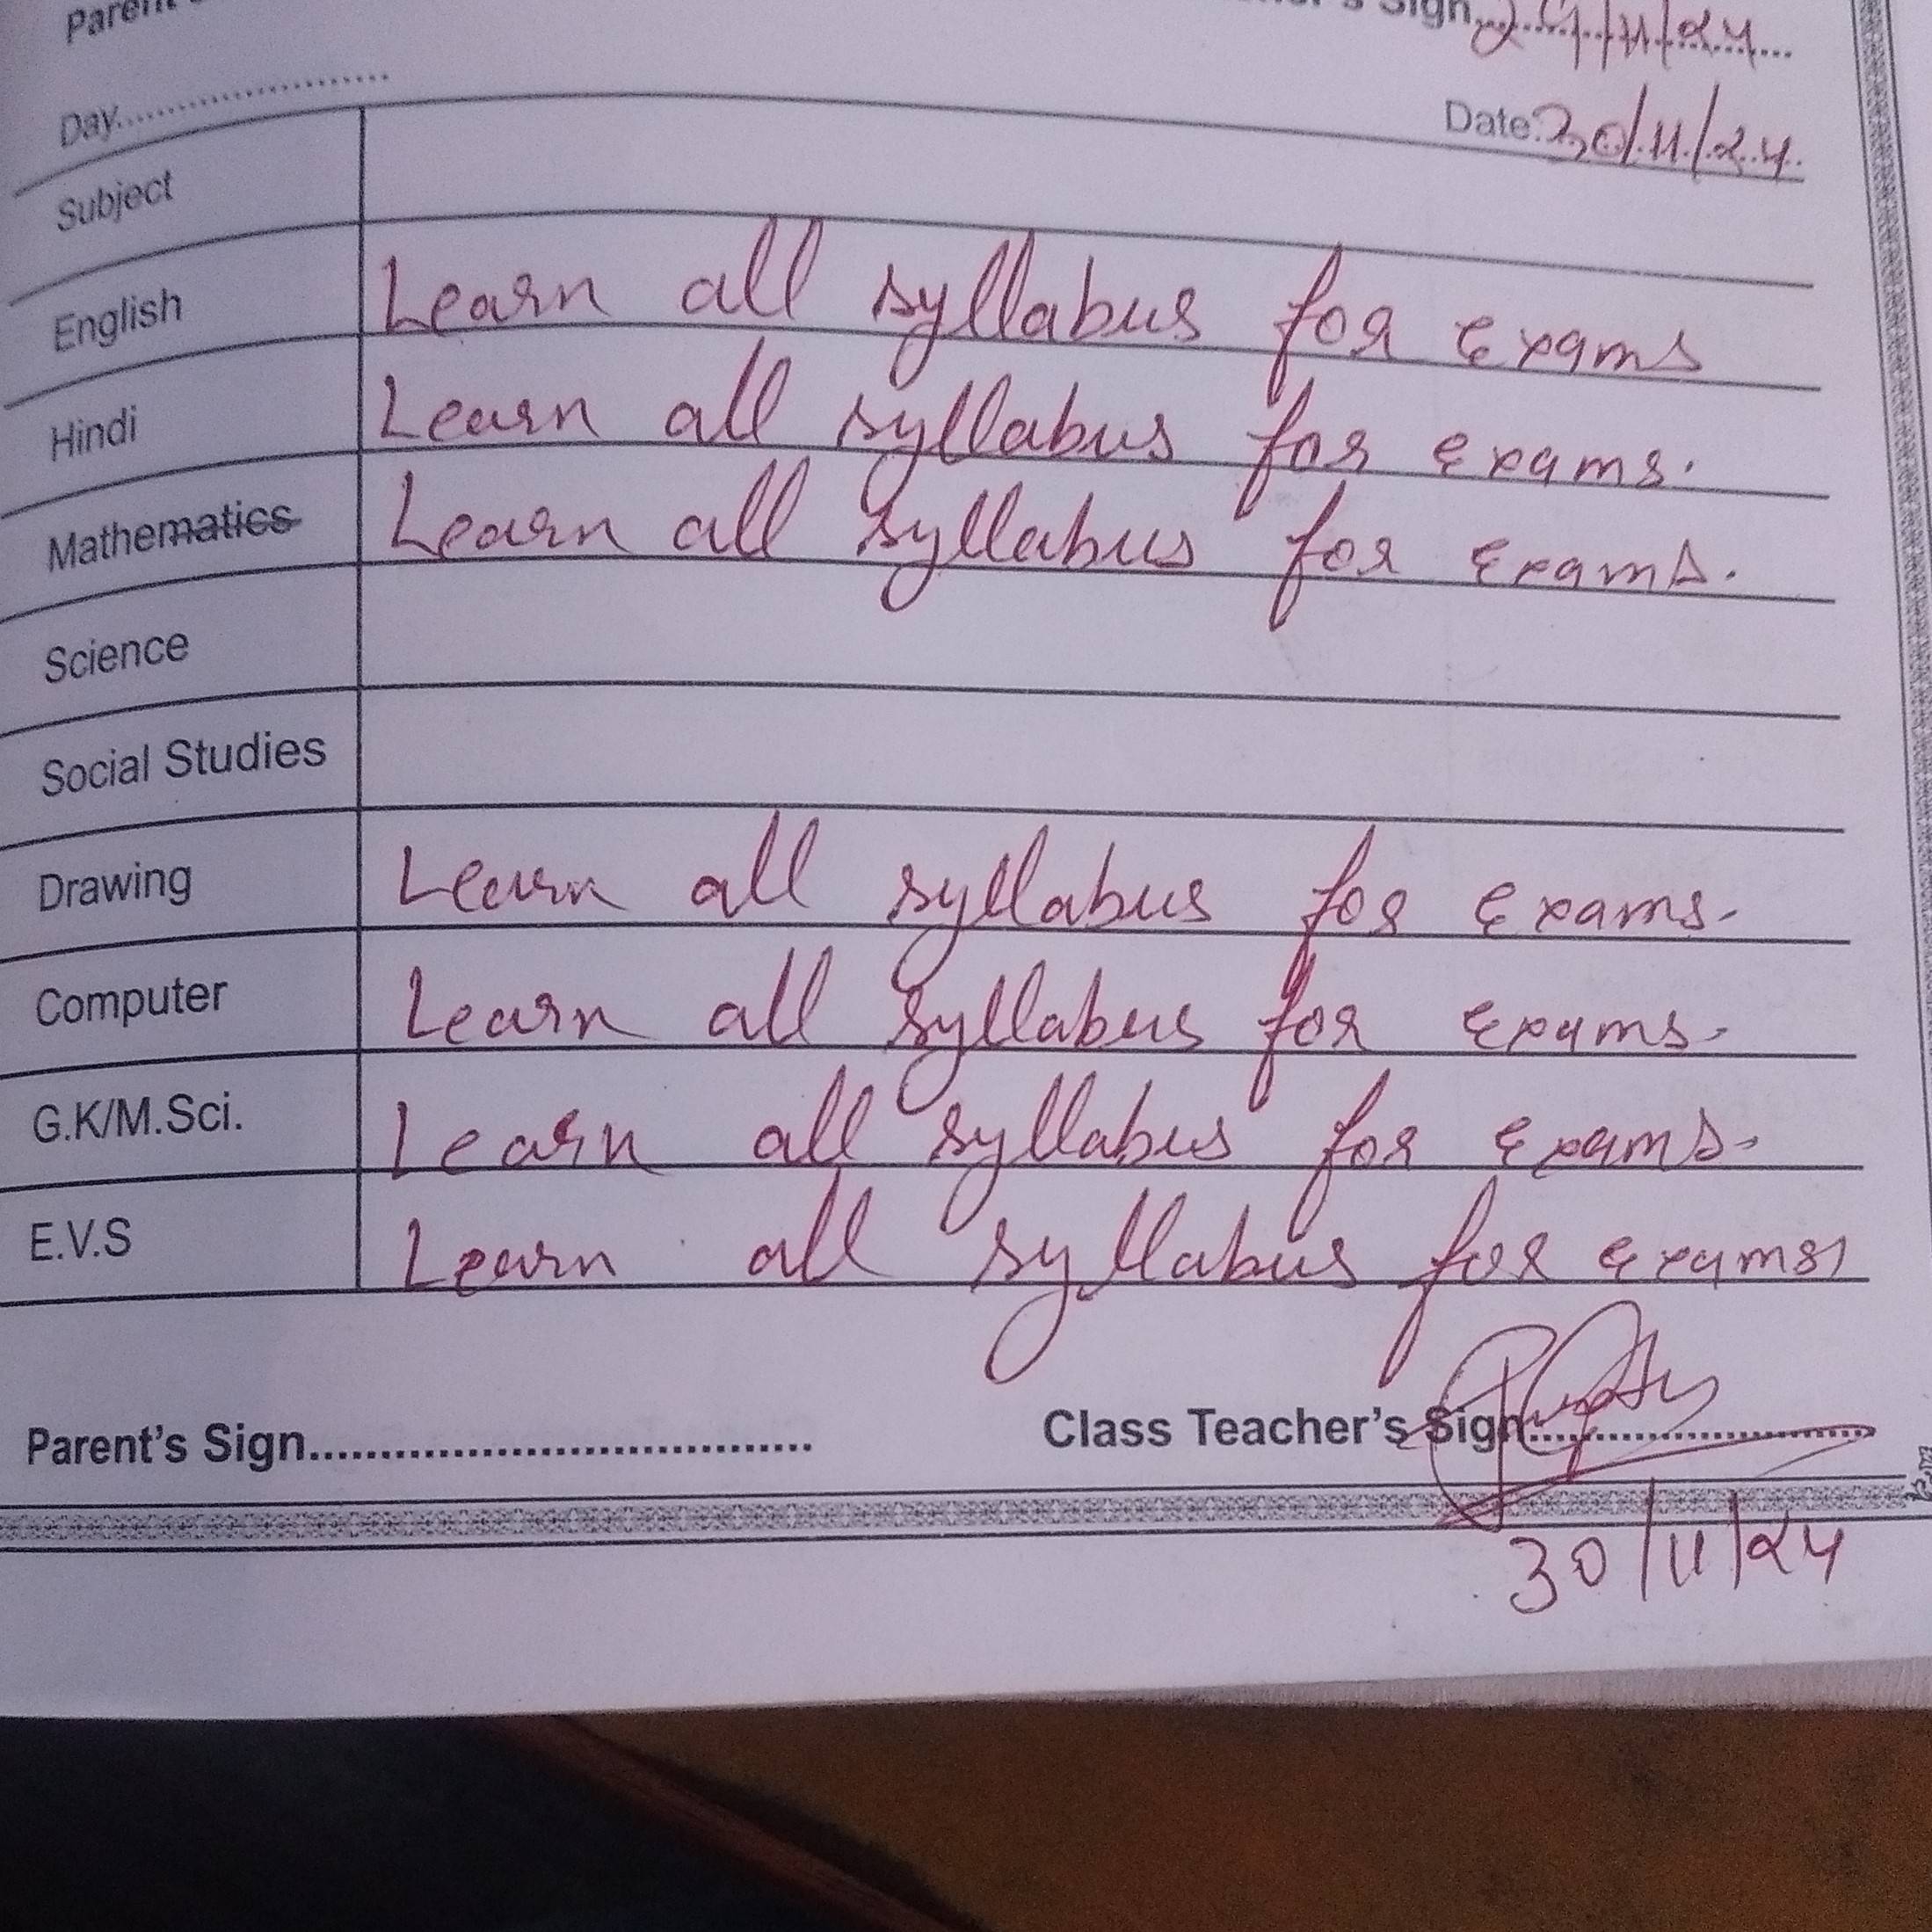 Parent's Sign 29/11/24
Day.......................... Date:30/11/24
Subject
English Learn all syllabus for exams
Hindi Learn all syllabus for exams.
Mathematics Learn all syllabus for exams.
Science
Social Studies
Drawing Learn all syllabus for exams.
Computer Learn all syllabus for exams.
G.K/M.Sci. Learn all syllabus for exams.
E.V.S Learn all syllabus for exams
Parent's Sign.................................... Class Teacher's Sign..........................
30/11/24